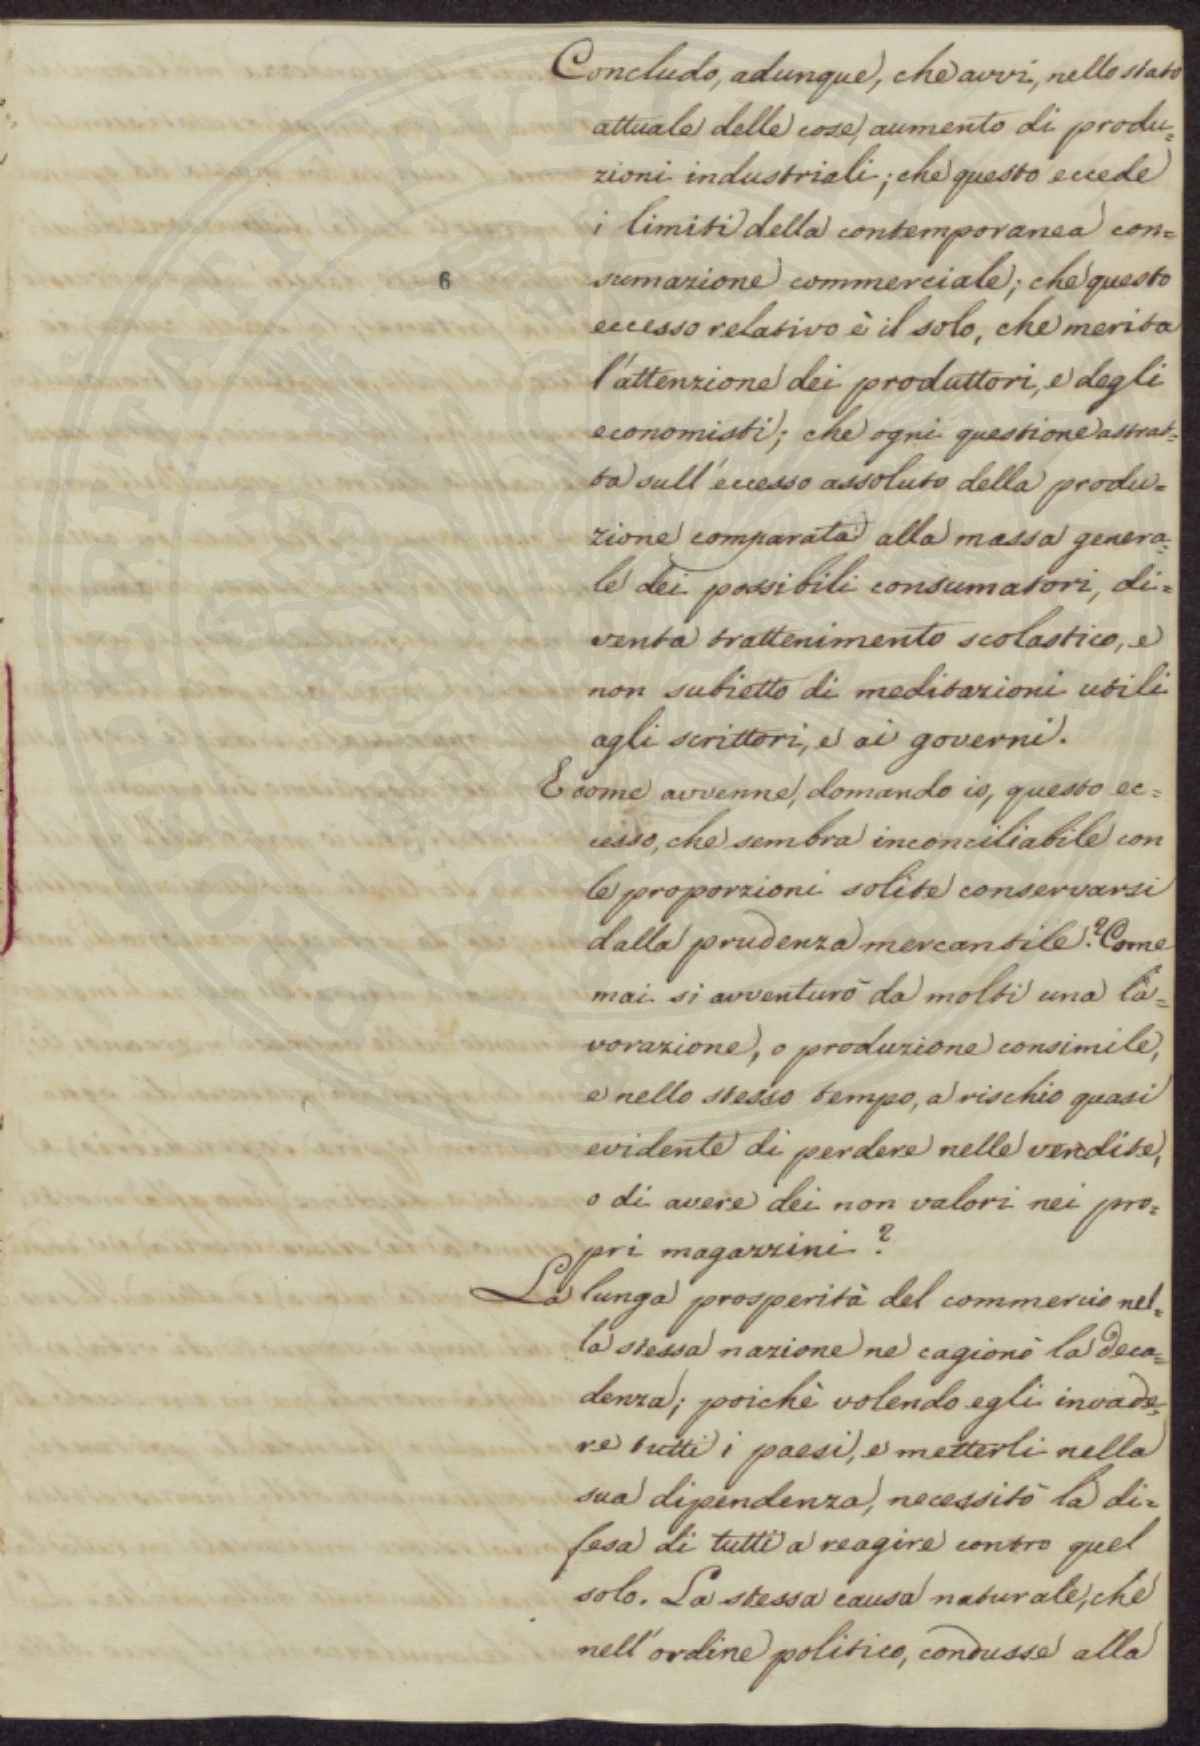 Concludo, adunque, che avvi, nello stato
attuale delle cose, aumento di produ=
zioni industriali; che questo eccede
i limiti della contemporanea con=
6
sumazione commerciale; che questo
eccesso relativo è il solo, che merita
l'attenzione dei produttori, e degli
economisti; che ogni questione astrat=
ta sull'eccesso assoluto della produ=
zione comparata alla massa genera=
le dei possibili consumatori, di=
venta trattenimento scolastico, e
non subietto di meditazioni utili
agli scrittori, e ai governi.
E come avvenne, domando io, questo ec=
cesso, che sembra inconciliabile con
le proporzioni solite conservarsi
dalla prudenza mercantile? Come
mai si avventurò da molti una la=
vorazione, o produzione consimile,
e nello stesso tempo, a rischio quasi
evidente di perdere nelle vendite,
o di avere dei non valori nei pro=
pri magazzini?
La lunga prosperità del commercio nel=
la stessa nazione ne cagionò la deca=
denza; poichè volendo egli invade=
re tutti i paesi, e metterli nella
sua dipendenza, necessitò la di=
fesa di tutti a reagire contro quel
solo. La stessa causa naturale, che
nell'ordine politico, condusse alla